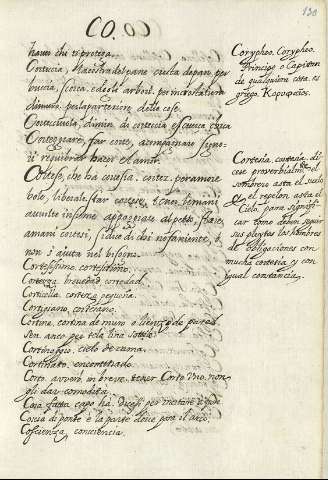 CO.
130
havu chi ti protega.
Corteccia, Maestra del pane civila de pan, per
buccia, scorca, ede gl' arbori. per incrostatura
di muro. per la parte ester. delle cose.
Corteciuola, dimin. di corteccia escauca chica
Corteggiare, far corte, acompagnare signo-
ri requibrar hazer el amor.
Cortese, che ha cortesia. cortez. per amore
vole, liberale star cortese, tener le mani
avvinte insieme appoggiate al petto, stare
amani cortesi, si dice di chi sta fariente, e
non s' aiuta nel bisogno.
Cortesissimo, cortesissimo.
Cortezza, brevedad, cortedad.
Corticella, corteza pequeña.
Cortigiano, cortesano.
Cortina, cortina de muro o lienço de pared
sen anco per tela lina sottile.
Cortinaggio, cielo de cama.
Cortinato, encortinado.
Corto avverb. in breve. tener Corto uno, non
gli dar comodità.
Cosa fatta capo ha. dicesi per incitare
Coscia di ponte è la parte dove posa l' arco.
Coscienza, conciencia.
Corypheo, Corypheo,
Principe o Capitan
de qualquiera cosa. es
griego. Κορυφαῖος.
Cortesia, cortesia, di-
cese proverbialm.te el
sombrero asta el suelo
y el repelon asta el
Cielo, para signifi-
car como deben seguir
sus pleytos los hombres
de obligaciones con
mucha cortesia y con
igual constancia.